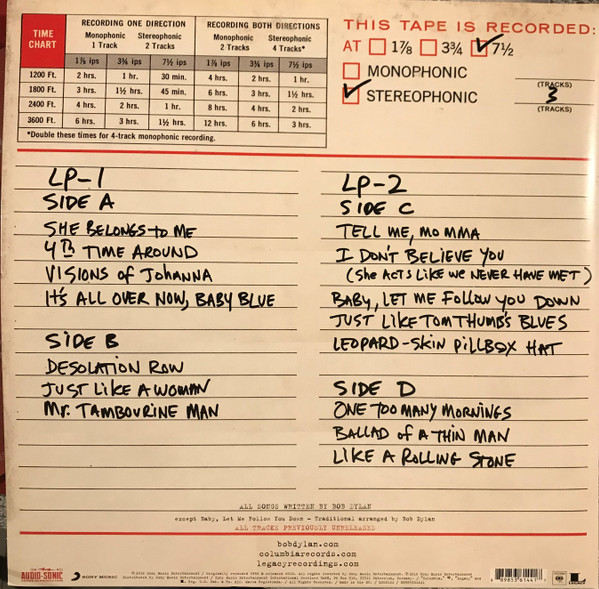 TIME CHART
RECORDING ONE DIRECTION
RECORDING BOTH DIRECTIONS
Monophonic 1 Track
Stereophonic 2 Tracks
Monophonic 2 Tracks
Stereophonic 4 Tracks*
1⅞ ips 3¾ ips 7½ ips 1⅞ ips 3¾ ips 7½ ips
1200 Ft. 2 hrs. 1 hr. 30 min. 4 hrs. 2 hrs. 1 hr.
1800 Ft. 3 hrs. 1½ hrs. 45 min. 6 hrs. 3 hrs. 1½ hrs.
2400 Ft. 4 hrs. 2 hrs. 1 hr. 8 hrs. 4 hrs. 2 hrs.
3600 Ft. 6 hrs. 3 hrs. 1½ hrs. 12 hrs. 6 hrs. 3 hrs.
*Double these times for 4-track monophonic recording.
THIS TAPE IS RECORDED:
AT 1⅞ 3¾ 7½
MONOPHONIC
(TRACKS)
STEREOPHONIC 3
(TRACKS)
LP-1
SIDE A
SHE BELONGS TO ME
4th TIME AROUND
VISIONS of JOHANNA
IT'S ALL OVER NOW, BABY BLUE
SIDE B
DESOLATION ROW
JUST LIKE A WOMAN
Mr. TAMBOURINE MAN
LP-2
SIDE C
TELL ME, MOMMA
I DON'T BELIEVE YOU
(She ACTS LIKE WE NEVER HAVE MET)
BABY, LET ME FOLLOW YOU DOWN
JUST LIKE TOM THUMB'S BLUES
LEOPARD-SKIN PILLBOX HAT
SIDE D
ONE TOO MANY MORNINGS
BALLAD of A THIN MAN
LIKE A ROLLING STONE
ALL SONGS WRITTEN BY BOB DYLAN
except Baby, Let Me Follow You Down - Traditional arranged by Bob Dylan
ALL TRACKS PREVIOUSLY UNRELEASED
bobdylan.com
columbiarecords.com
legacyrecordings.com
AUDIO-SONIC
SONY MUSIC